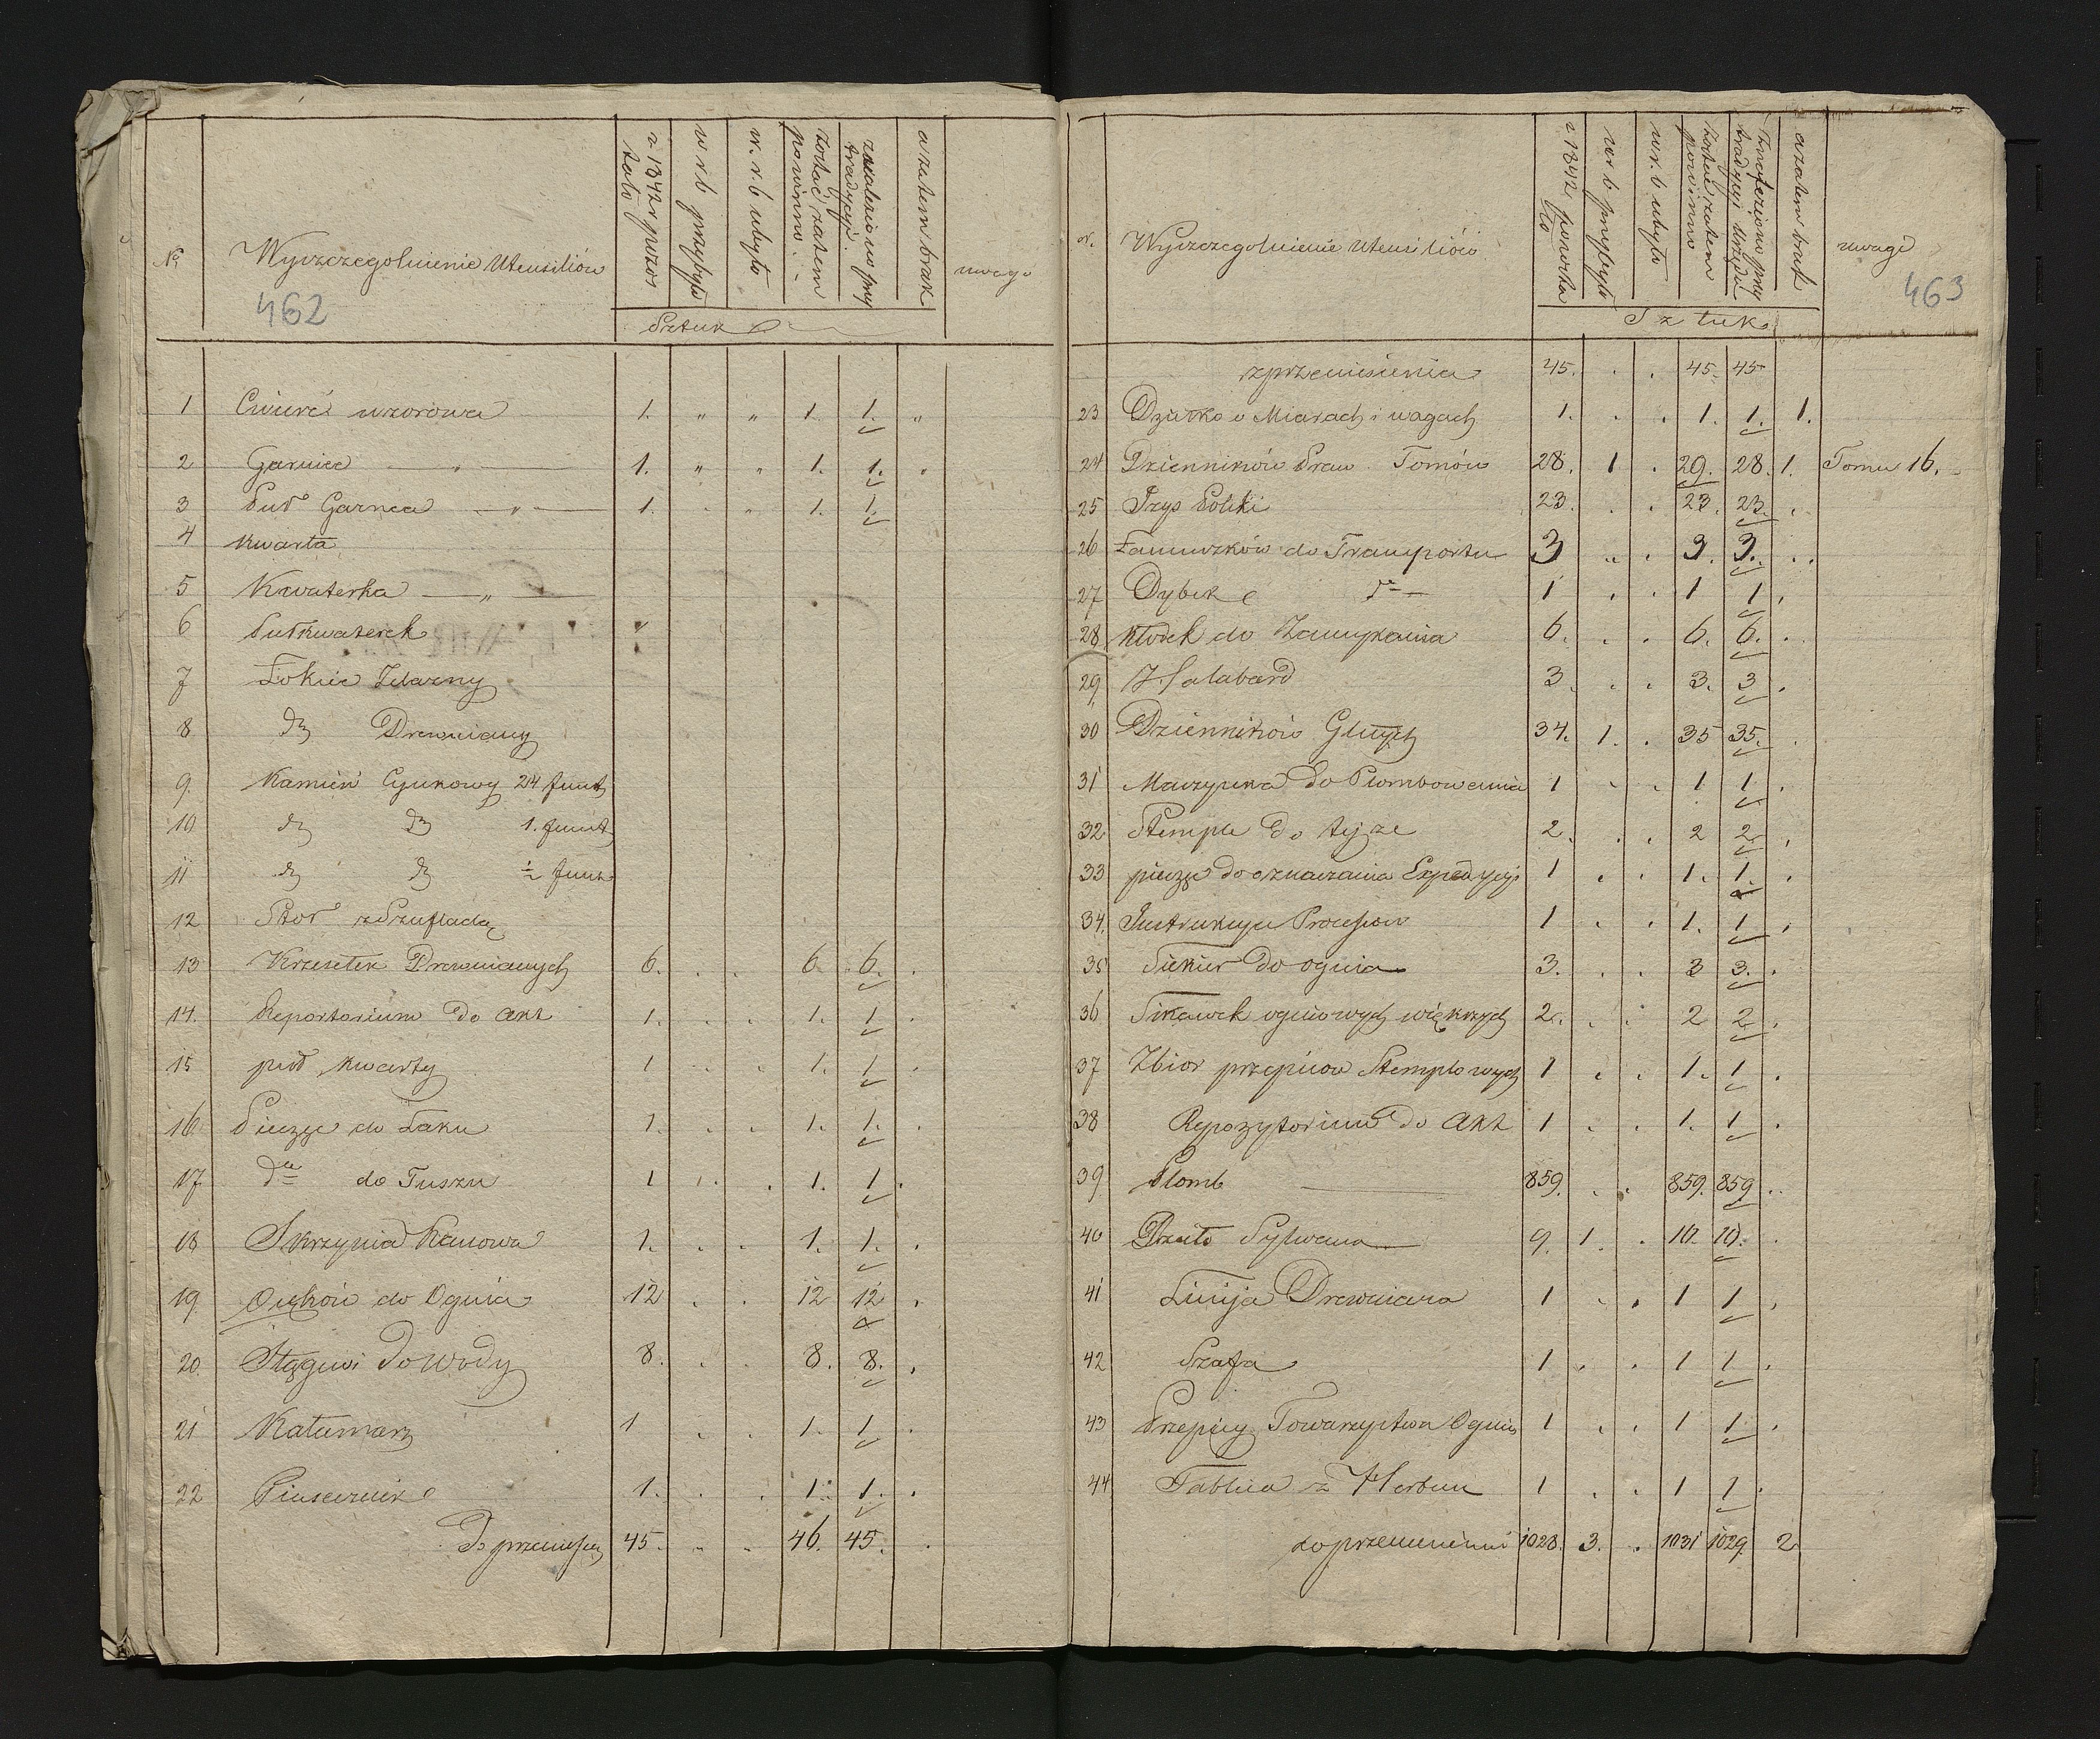 № Wyszczegolnienie Utensiliów z 1842r pozostało w r b przybyło w. r. b ubyło zostać zatem powinno znaleziono przy tradycyi a zatem brak uwagi
462
Sztuk
1 Cwierć wzorowa 1. " " 1. 1. "
2 Garniec — " — 1. " " 1. 1. "
3 Puł Garnca — " — 1. . " 1. 1.
4 Kwarta
5 Kwaterka — " —
6 Pułkwaterek "
7 Łokieć Żelazny
8 do Drewniany
9 Kamień Cynkowy 24 funt
10 do do 1. funt
11 do do ½ funt
12 Stoł z Szufladą
13 Krzesełek Drewnianych 6. . . 6 6. .
14. Reportorium do akt 1. . . 1. 1 .
15 puł kwarty 1 . . 1. 1 .
16 Pieczęć do Laku 1. . . 1. 1. .
17 do do Tuszu 1 . . 1. 1 .
18 Skrzynia Kassowa 1. . . 1. 1. .
19 Oręków do Ognia 12 . . 12 12 .
20. Stągwi do wody 8. . . 8. 8. .
21 Kałamarz 1 . . 1. 1 .
22 Piasecznik 1. . . 1. 1. .
Do przeniesien 45. " " 46. 45. .
nr. Wyszczegolnienie Utensiliów z 1842 pozostało w r b. przybyło w r. b. ubyło zostać zatem powinno Znaleziono przy tradycyi Urzędu a zatem brak uwagi
463
Sztuk
z przeniesienia 45. . . 45. 45
23 Dziełko o Miarach i wagach 1. . . 1. 1. 1.
24 Dzienników Praw Tomów 28. 1 . 29. 28. 1. Tomu 16.
25 Xiąg Polski 23. . . 23. 23. .
26 Łancuszków do Transportu 3 . . 3. 3. .
27 Dybek do 1 . . 1 1 .
28 Kłodek do Zamykania 6. . . 6. 6. .
29 Halabard 3. . . 3. 3 .
30 Dzienników Glnych 34. 1. . 35 35. .
31 Maszynka do Plombowania 1 . . 1 1 .
32 Stemple do tejże 2. . . 2 2. .
33 pieczęć do oznaczania Expedycyi 1 . . 1. 1. .
34. Instrukcya Processow 1 . . 1. 1 .
35 Siekier do ognia 3. . . 3 3. .
36 Sikawek ogniowych większych 2. . . 2 2. .
37 Zbior przepisow Stemplowych 1 . . 1. 1 .
38 Repozytorium do akt 1 . . 1. 1 .
39 Plomb — 859. . . 859. 859 .
40 Dzieło Sylwana 9. 1. . 10. 10. .
41 Linija Drewniana 1 . . 1 1 .
42 Szafa 1 . . 1 1 .
43 Przepisy Towarzystwa Ognio 1 . . 1 1 .
44 Tablica z Herbem 1 . . 1 1 .
do przeniesienia 1028. 3. . 1031 1029. 2